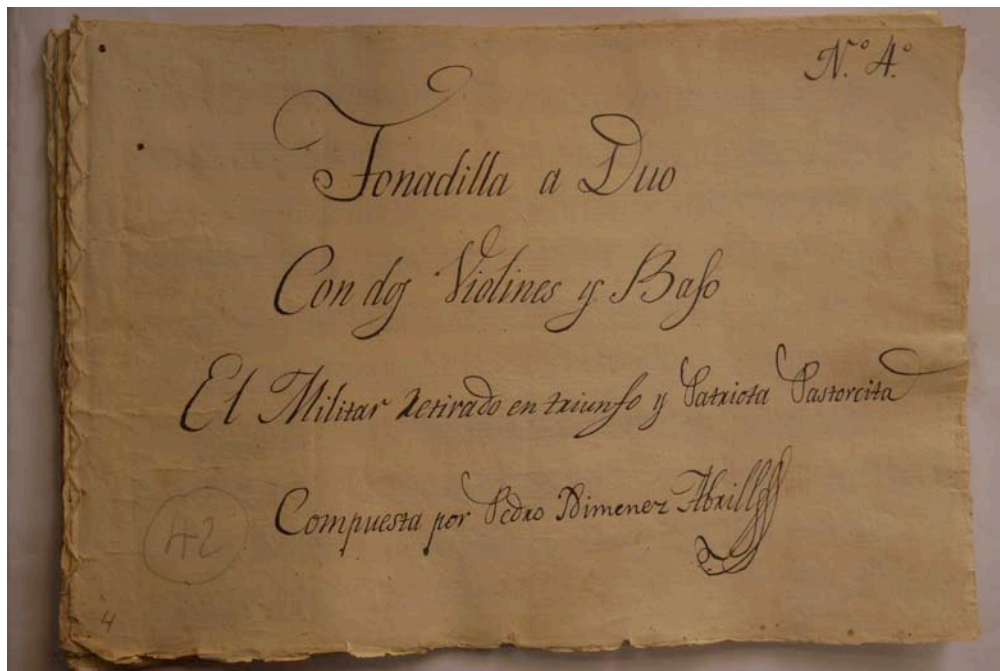 N.º 4.º
Tonadilla a Duo
Con dos Violines y Baſo
El Militar Retirado en triunfo y Patriota Pastorcita
Compuesta por Pedro Ximenez Abrill
42
4